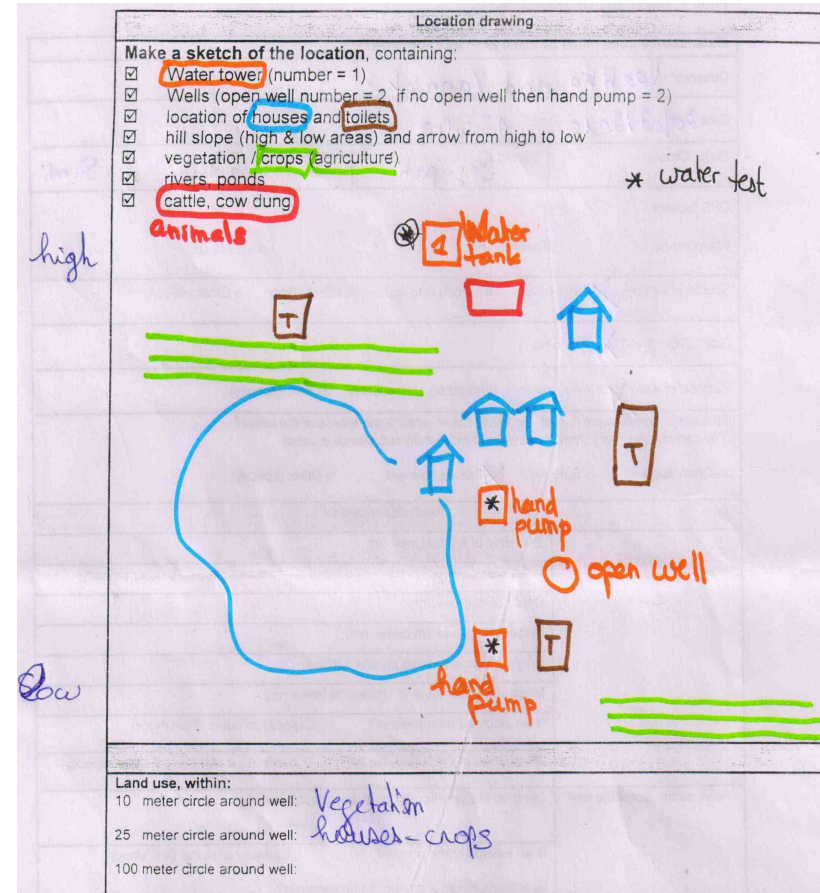 Location drawing
Make a sketch of the location, containing:
☑ Water tower (number = 1)
☑ Wells (open well number = 2, if no open well then hand pump = 2)
☑ location of houses and toilets
☑ hill slope (high & low areas) and arrow from high to low
☑ vegetation / crops (agriculture)
☑ rivers, ponds
☑ cattle, cow dung
animals
* water test
high
* 1 Water
tank
T
T
* hand
pump
open well
* T
hand
pump
Low
Land use, within:
10 meter circle around well: Vegetation
25 meter circle around well: houses - crops
100 meter circle around well: